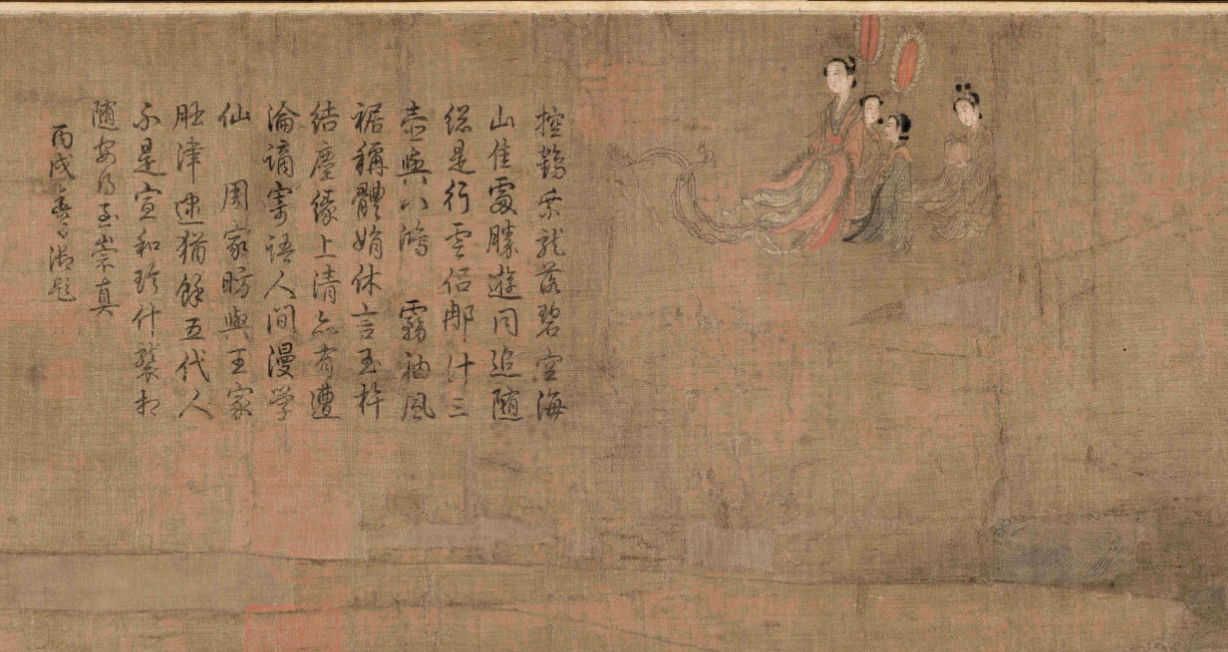 控鶴乘龍落碧空海
山佳處勝遊同追随
總是行雲侶那計三
壺與八鴻 霧袖風
裾稱體娟休言玉杵
結塵緣上清亦有遭
淪謫寄語人間漫学
仙 周家昉與王家
肶津逮猶餘五代人
不是宣和珍什襲
随安得至崇真
丙戌春日御題